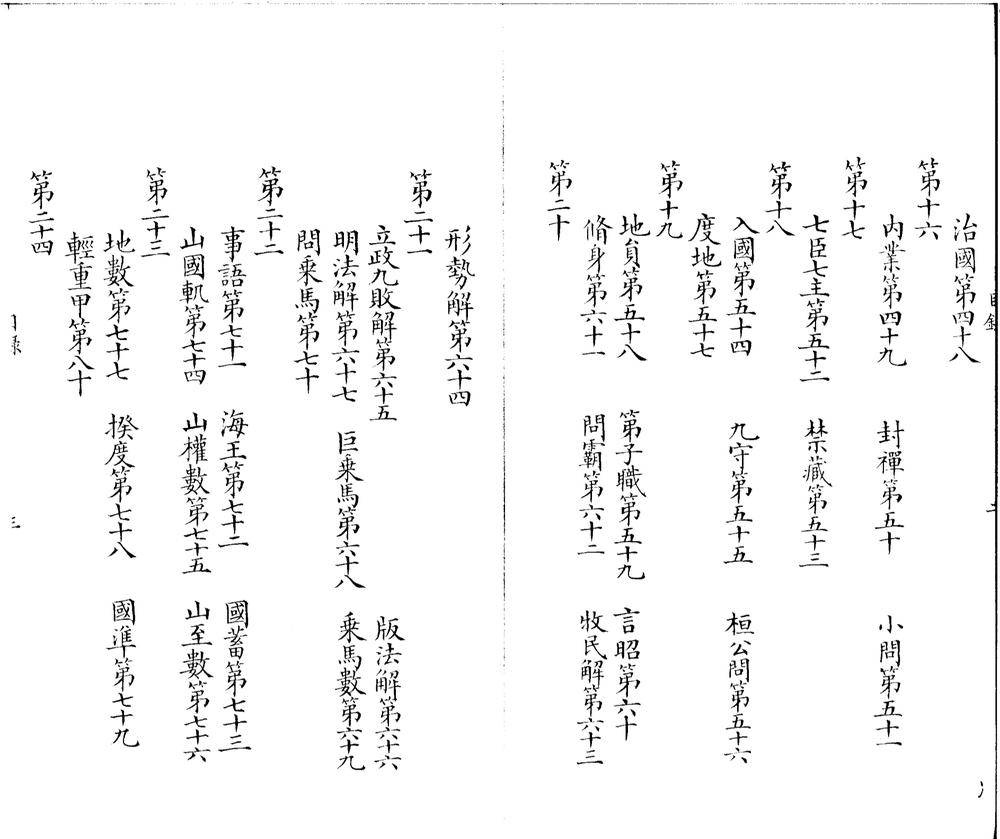 治國第四十八
第十六
内業第四十九　封禪第五十　小問第五十一
第十七
七臣七主第五十二　禁藏第五十三
第十八
入國第五十四　九守第五十五　桓公問第五十六
度地第五十七
第十九
地員第五十八　第子職第五十九　言昭第六十
脩身第六十一　問霸第六十二　牧民解第六十三
第二十
形勢解第六十四
第二十一
立政九敗解第六十五　版法解第六十六
明法解第六十七　巨乘馬第六十八　乘馬數第六十九
問乘馬第七十
第二十二
事語第七十一　海王第七十二　國蓄第七十三
山國軌第七十四　山權數第七十五　山至數第七十六
第二十三
地數第七十七　揆度第七十八　國準第七十九
輕重甲第八十
第二十四
目録　三